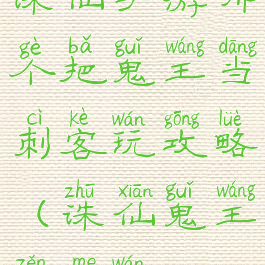 gè bǎ guǐ wáng dāng
个把鬼王当
cì kè wán gōng lüè
刺客玩攻略
zhū xiān guǐ wáng
(诛仙鬼王
zěn me wán